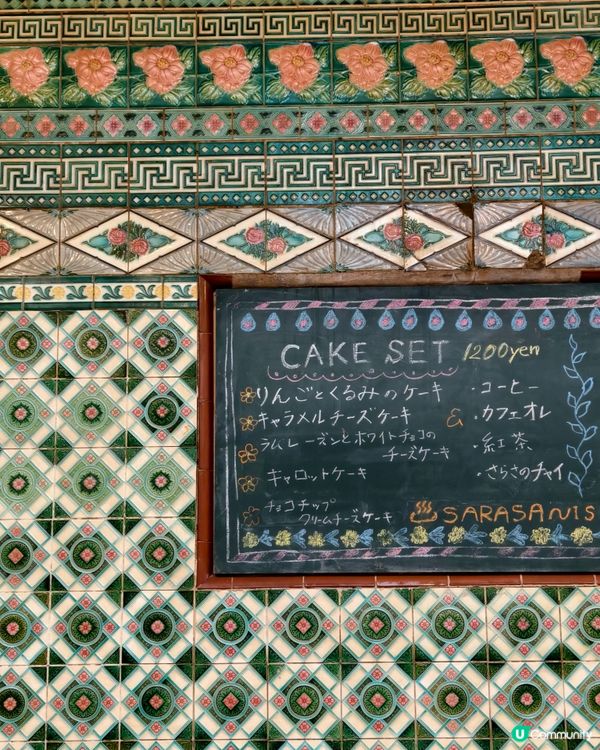 CAKE SET 1200yen
りんごとくるみのケーキ
キャラメルチーズケーキ
ラムレーズンとホワイトチョコの
チーズケーキ
キャロットケーキ
チョコチップ
クリームチーズケーキ
&
・コーヒー
・カフェオレ
・紅茶
・さらさのチャイ
♨SARASANIS
U Community